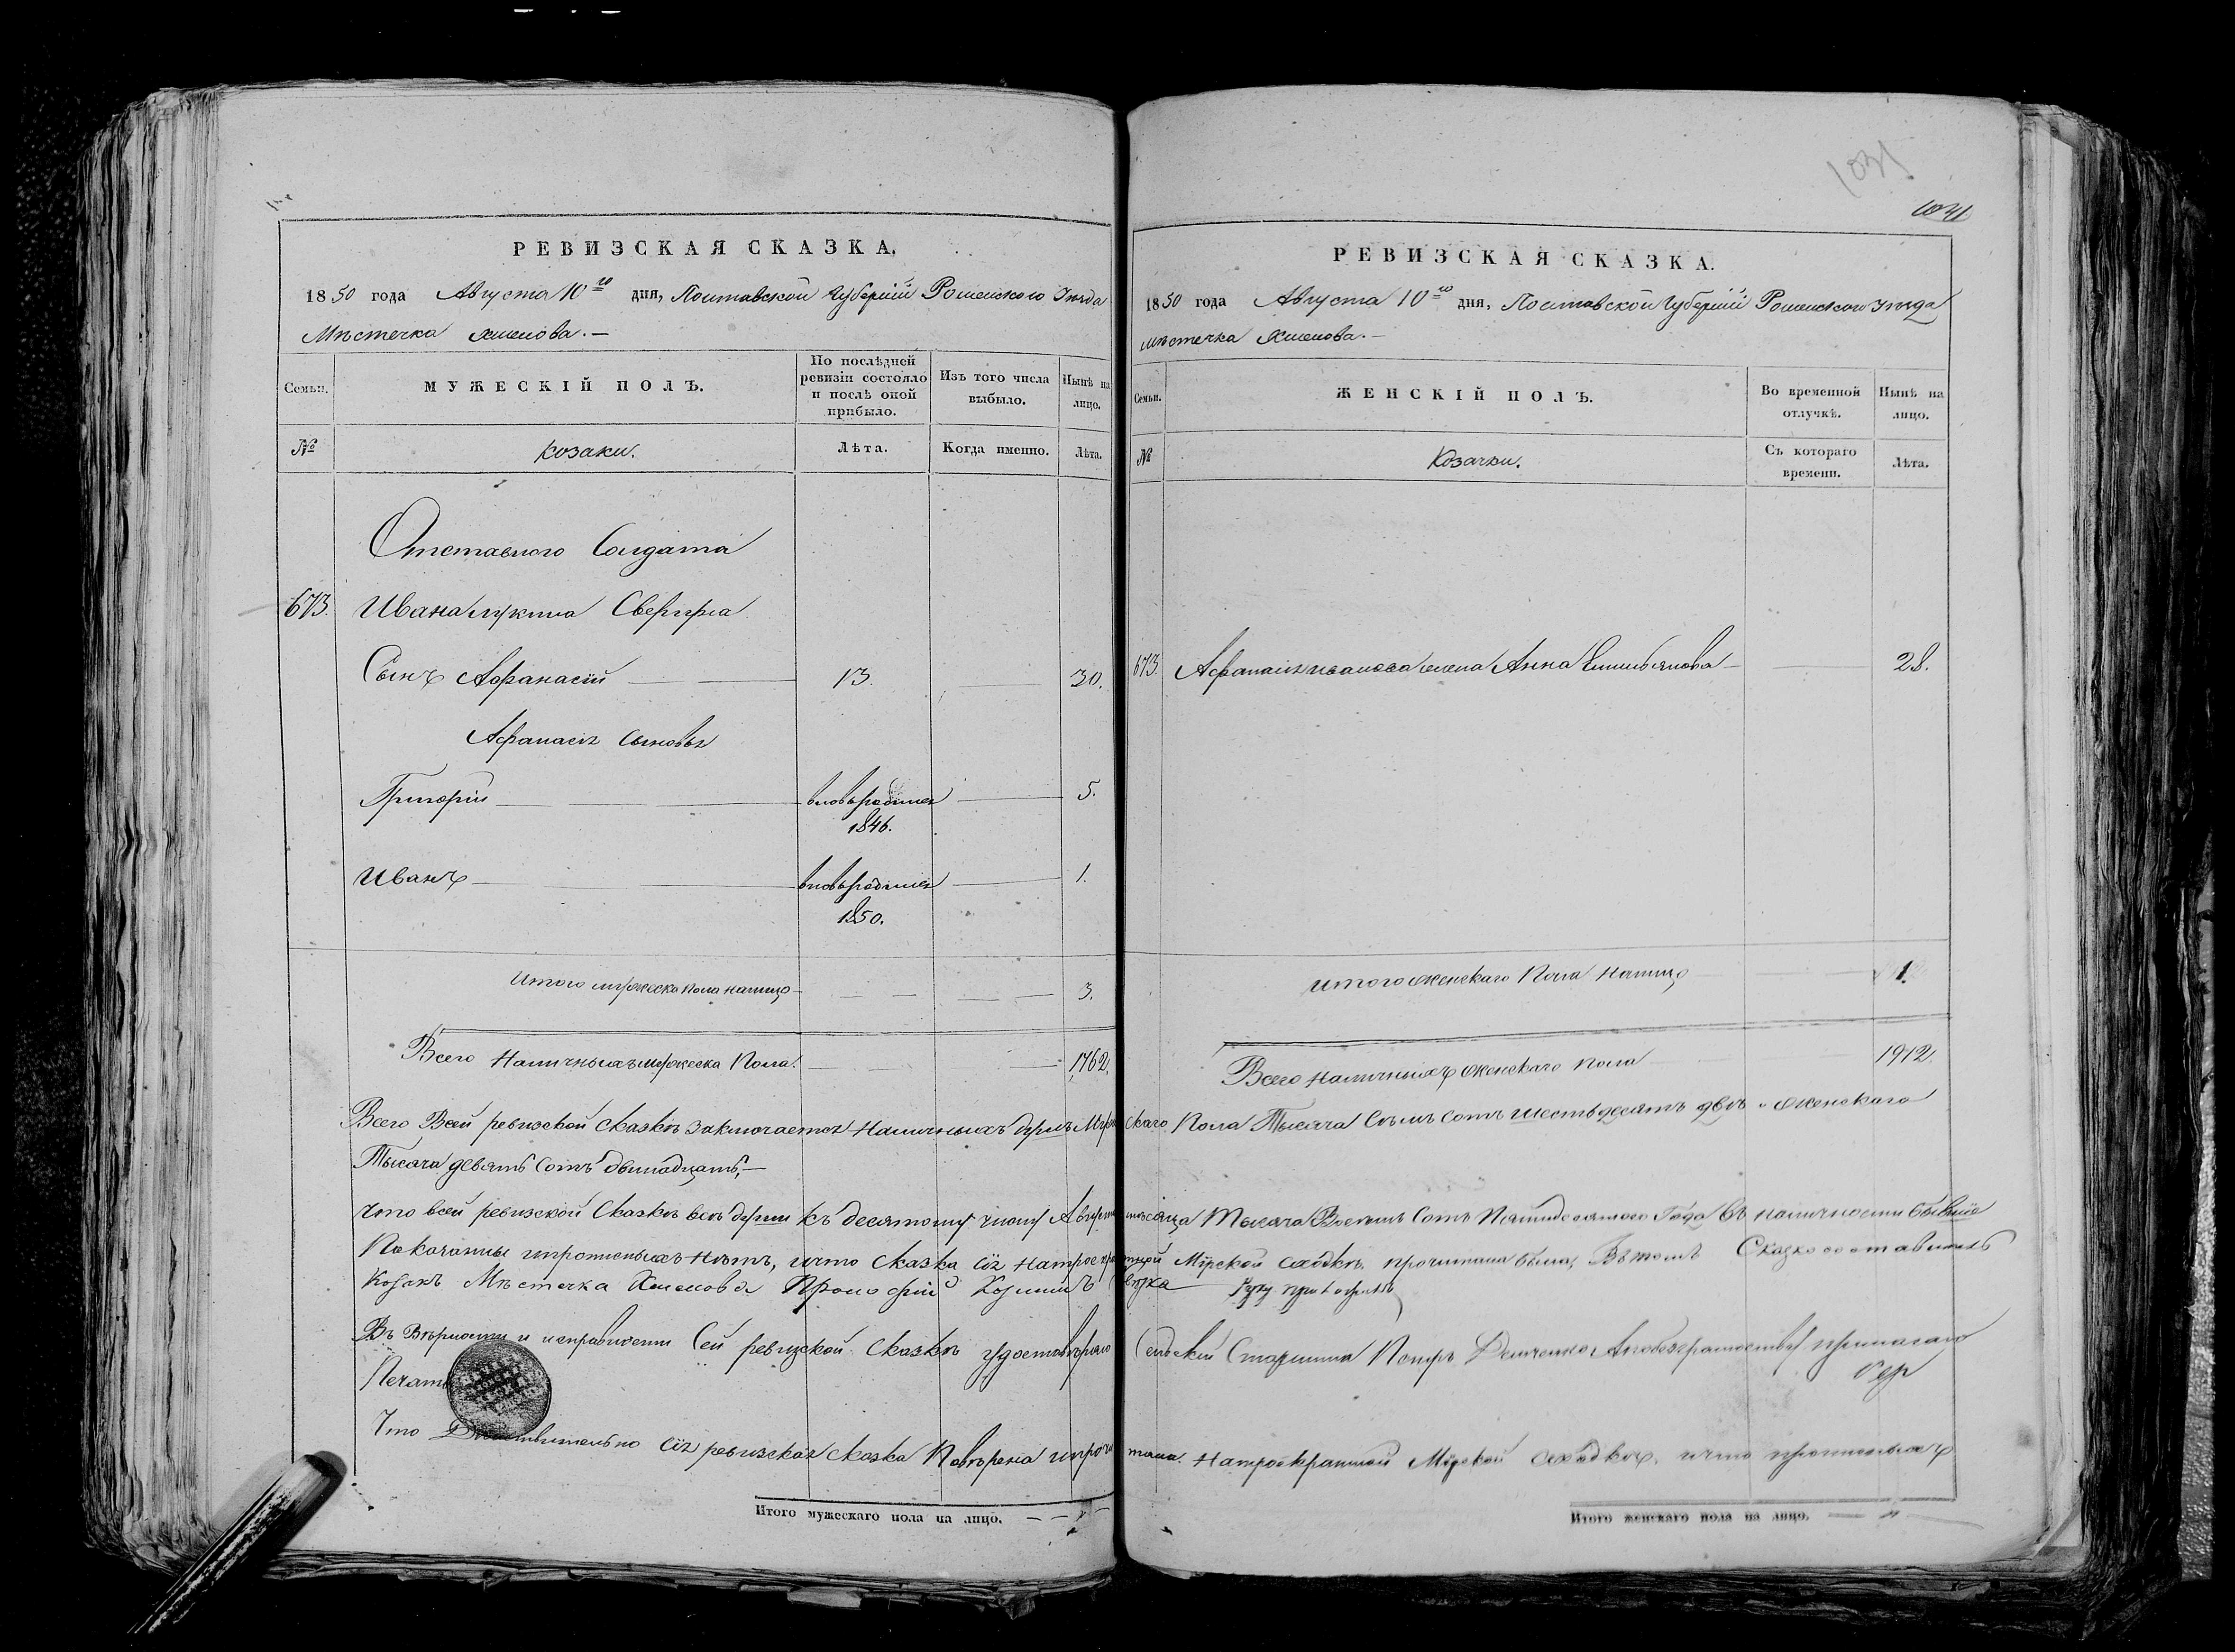 РЕВИЗСКАЯ СКАЗКА.
1850 года Августа 10го дня, Полтавской Губернiи Роменского Уѣзда
Мѣстечка Хмелова. —
Семьи.
МУЖЕСКIЙ ПОЛЪ.
По послѣдней ревизiи состояло и послѣ оной прибыло.
Изъ того числа выбыло.
Нынѣ на лицо.
№
Козаки.
Лѣта.
Когда именно.
Лѣта.
Отставного Солдата
673. Ивана Лукина
Сынъ Афанасiй 13. 30.
Афанасiя сыновья
Григорiй вновьродился 5.
1846.
Иванъ вновьродился 1.
1850.
Итого мужеска пола налицо 3.
Всего Наличныхъ мужеска Пола. 1762.
1031
1031
РЕВИЗСКАЯ СКАЗКА.
1850 года Августа 10го дня, Полтавской Губернiи Роменского Уѣзда
мѣстечка Хмелова. —
Семьи.
ЖЕНСКIЙ ПОЛЪ.
Во временной отлучкѣ.
Нынѣ на лицо.
№
Козачки.
Съ котораго времени.
Лѣта.
673. Афанасiя Иванова жена Анна Емельянова — 28.
Итого женскаго Пола Налицо 1.
Всего Наличныхъ женскаго пола 1912.
Всего Всей ревизской Сказкѣ заключается Наличныхъ душъ Мужескаго Пола Тысяча Сѣмъ сотъ шестьдесятъ двѣ и женскаго
Тысяча девять сотъ двенадцать, —
Что всей ревизской Сказкѣ всѣ души къ десятому числу Августа мѣсяца Тысяча Восемь Сотъ Пятидесятого Года въ наличности бывшiе
Показанны ипрописныхъ Нѣтъ, ичто Сказка сiя Натроекратной Мiрской сходкѣ прочитана была, Въ томъ Сказко составитель
Козакъ Мѣстечка Хмелова руку приложилъ
Въ Вѣрности и исправности Сей ревизской Сказки удостовѣряю Сельскiй Старшина Петръ Демченко, Апобезграмотству прилагаю
Печать
Что Дѣйствительно сiя ревизская Сказка Повѣрена ипрочитана. Натроекратной Мiрской сходкѣ, ичто прописныхъ
Итого мужескаго пола на лицо. — —
Итого женскаго пола на лицо. —